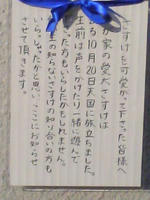 さすけを可愛がって下さった皆様へ
が家の愛犬さすけは
る10月20日天国に旅立ちました。
生前は声をかけたり一緒に遊んで
った方もいらしたかもしれません。
主の知らないさすけの知り合いの方も
いらしたかと思い、ここにお知らせ
させて頂きます。